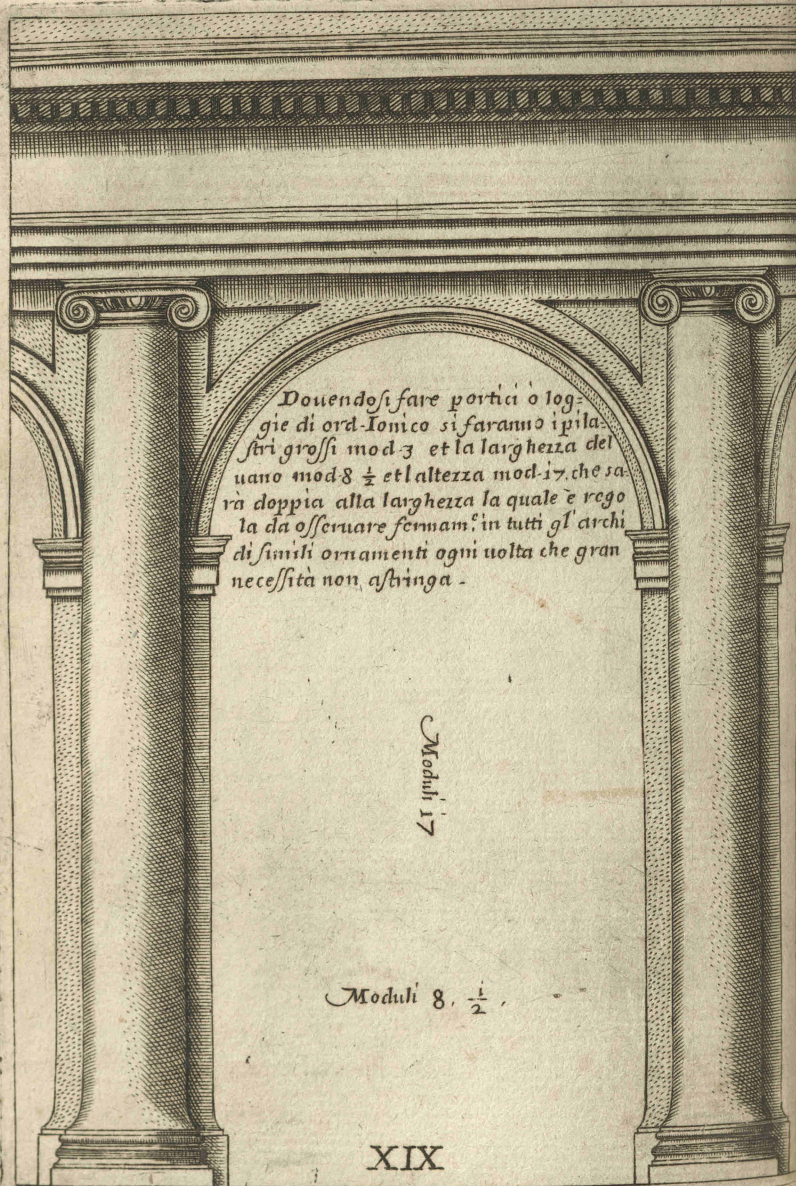 Douendosi fare portici ò log=
gie di ord-Ionico si faranno i pila=
stri grossi mod-3 et la larghezza del
uano mod-8 ½ et l altezza mod-17, che sa=
rà doppia alla larghezza la quale è rego
la da osseruare fermam.te in tutti gl'archi
di simili ornamenti ogni uolta che gran
necessità non astringa -
Moduli 17
Moduli 8. ½.
XIX